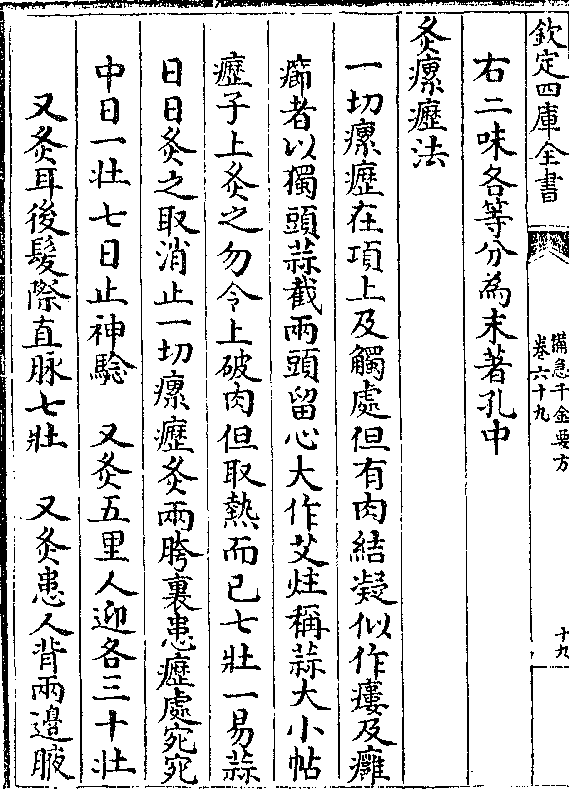 欽定四庫全書
備急千金要方
卷六十九
十九
右二味各等分為末著孔中
灸瘰癧法
一切瘰癧在項上及觸處但有肉結凝似作瘻及癰
癤者以獨頭蒜截兩頭留心大作艾炷稱蒜大小帖
癧子上灸之勿令上破肉但取熱而已七壯一易蒜
日日灸之取消止一切瘰癧灸兩胯裏患癧處宛宛
中日一壯七日止神驗　又灸五里人迎各三十壯
又灸耳後髮際直脉七壯　又灸患人背兩邊腋